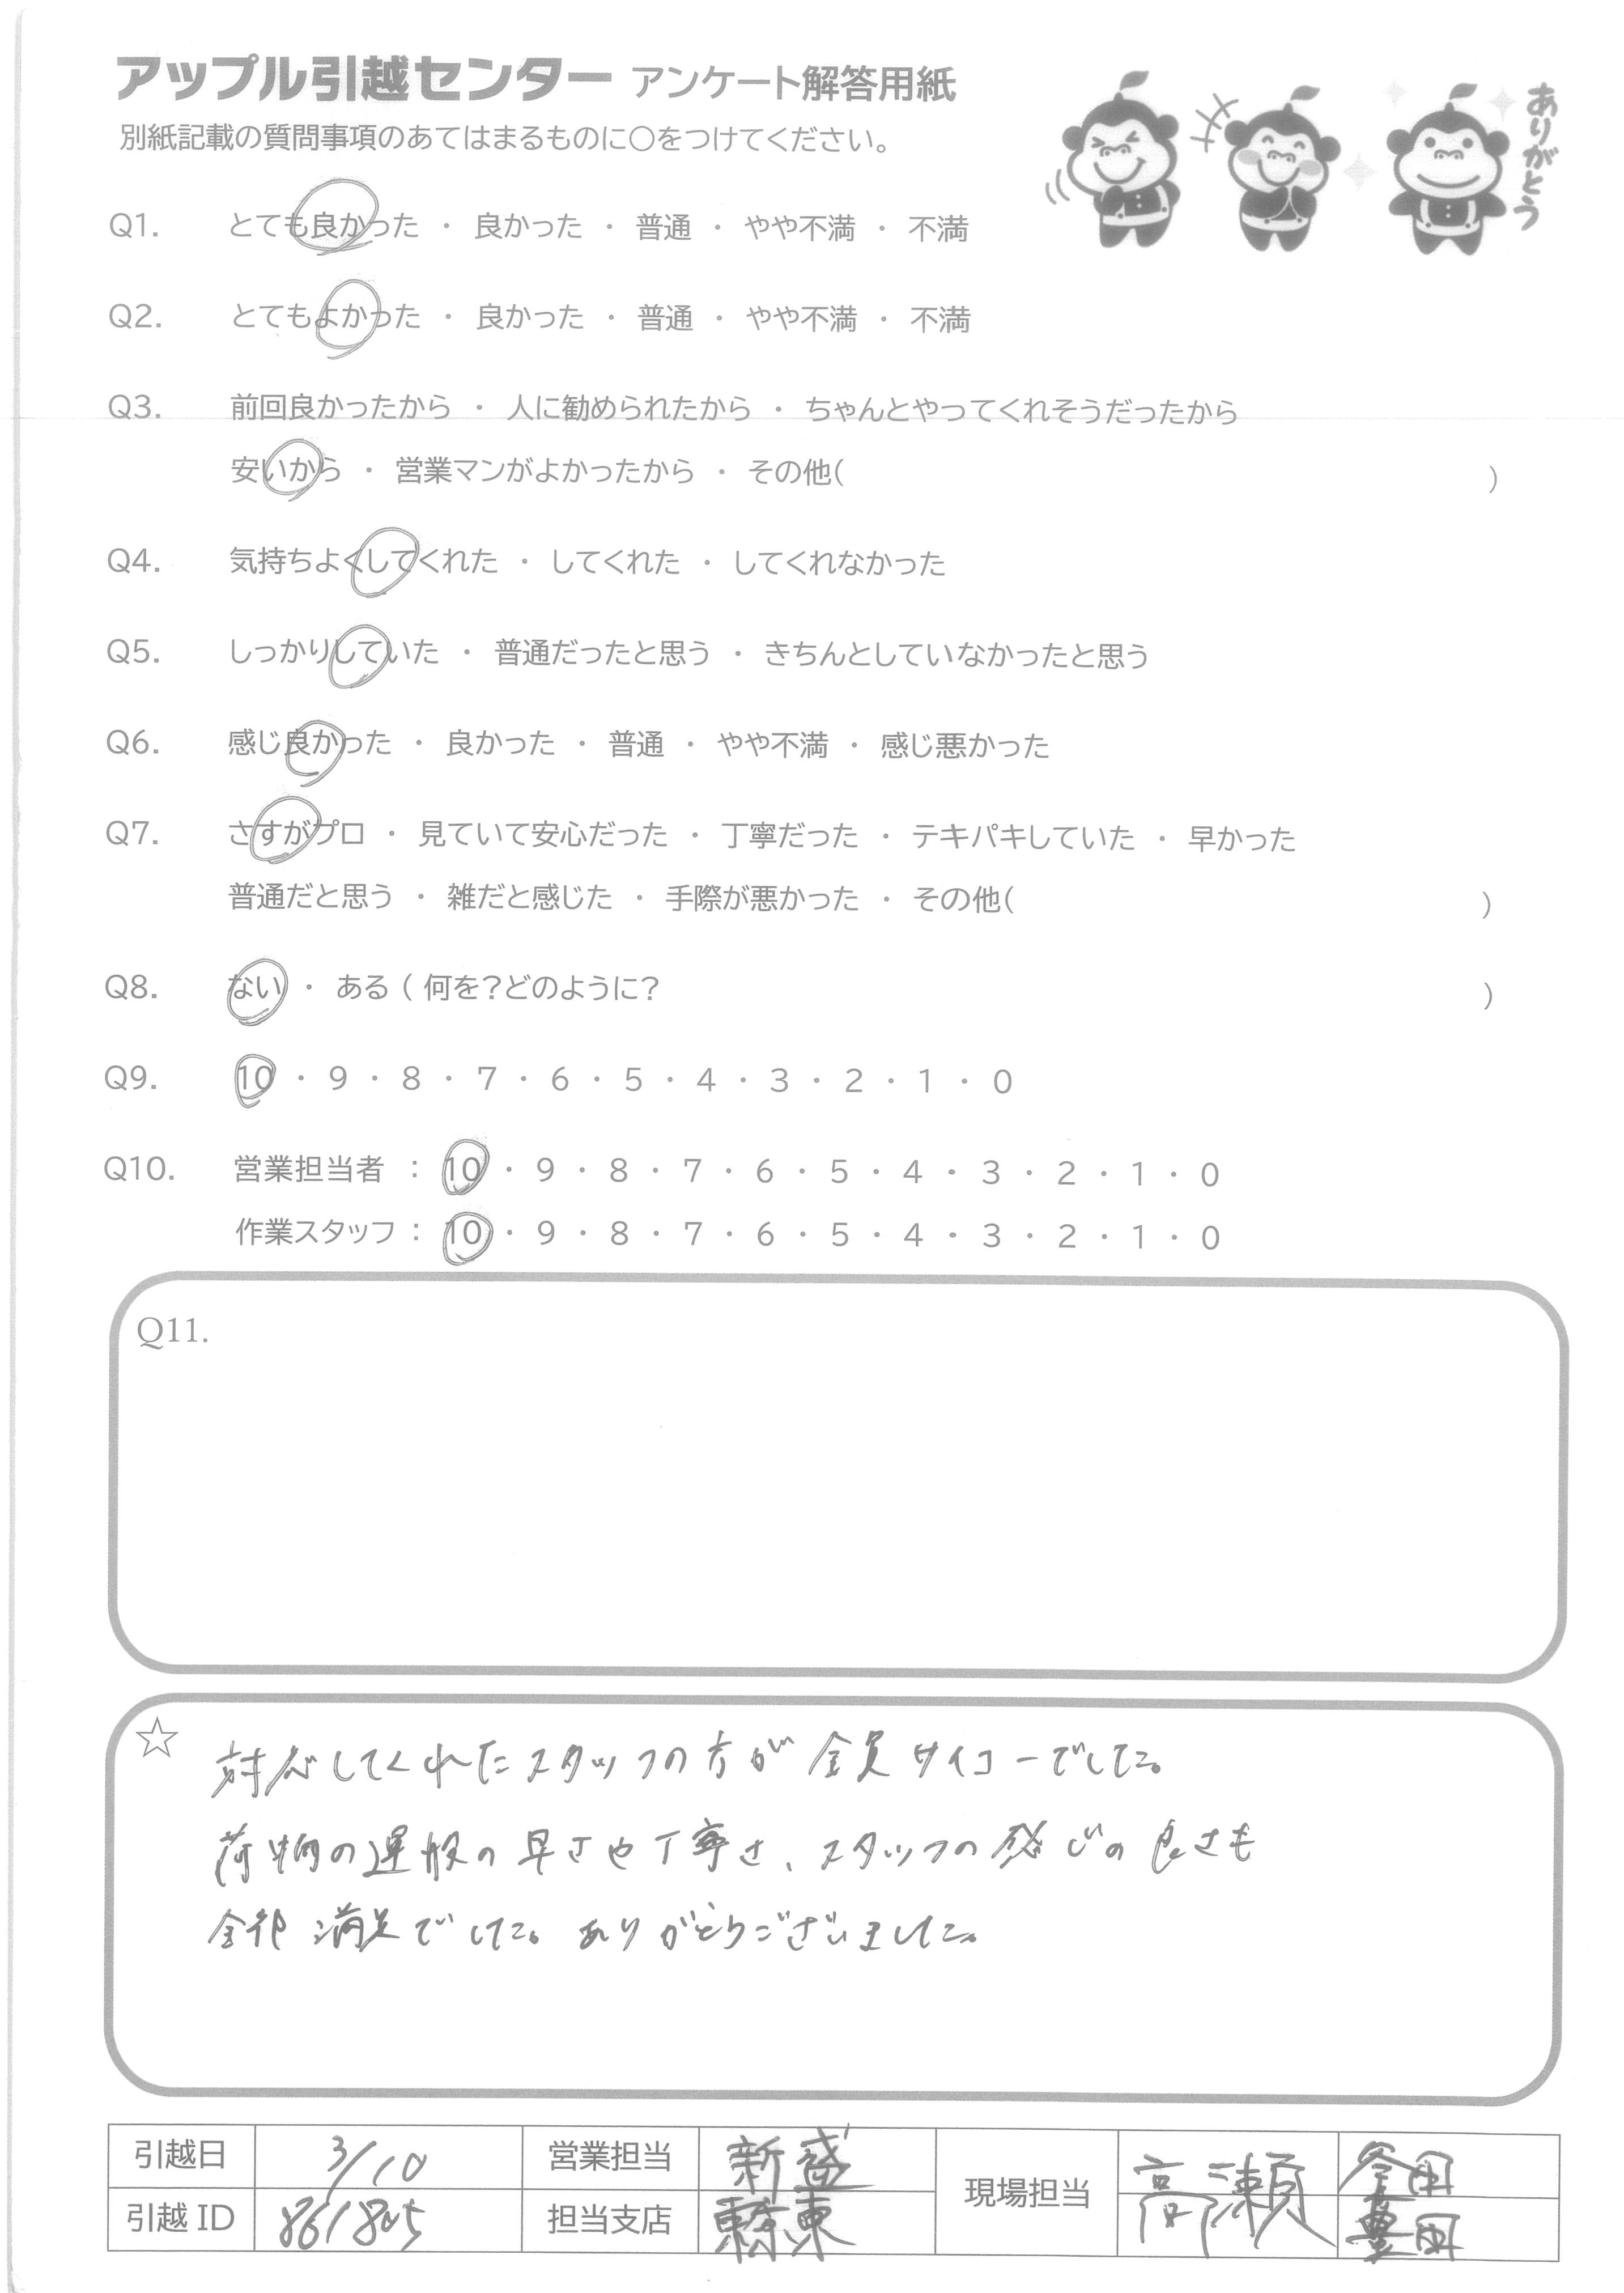 アップル引越センター アンケート解答用紙
別紙記載の質問事項のあてはまるものに○をつけてください。
ありがとう
Q1. とても良かった ・ 良かった ・ 普通 ・ やや不満 ・ 不満
Q2. とてもよかった ・ 良かった ・ 普通 ・ やや不満 ・ 不満
Q3. 前回良かったから ・ 人に勧められたから ・ ちゃんとやってくれそうだったから
安いから ・ 営業マンがよかったから ・ その他( )
Q4. 気持ちよくしてくれた ・ してくれた ・ してくれなかった
Q5. しっかりしていた ・ 普通だったと思う ・ きちんとしていなかったと思う
Q6. 感じ良かった ・ 良かった ・ 普通 ・ やや不満 ・ 感じ悪かった
Q7. さすがプロ ・ 見ていて安心だった ・ 丁寧だった ・ テキパキしていた ・ 早かった
普通だと思う ・ 雑だと感じた ・ 手際が悪かった ・ その他( )
Q8. ない ・ ある ( 何を?どのように? )
Q9. 10 ・ 9 ・ 8 ・ 7 ・ 6 ・ 5 ・ 4 ・ 3 ・ 2 ・ 1 ・ 0
Q10. 営業担当者 : 10 ・ 9 ・ 8 ・ 7 ・ 6 ・ 5 ・ 4 ・ 3 ・ 2 ・ 1 ・ 0
作業スタッフ : 10 ・ 9 ・ 8 ・ 7 ・ 6 ・ 5 ・ 4 ・ 3 ・ 2 ・ 1 ・ 0
Q11.
☆ 対応してくれたスタッフの方が全員サイコーでした。
荷物の運搬の早さや丁寧さ、スタッフの感じの良さも
全部満足でした。ありがとうございました。
引越日 3/10 営業担当 新盛 現場担当 高瀬 金田
引越ID 担当支店 豊田